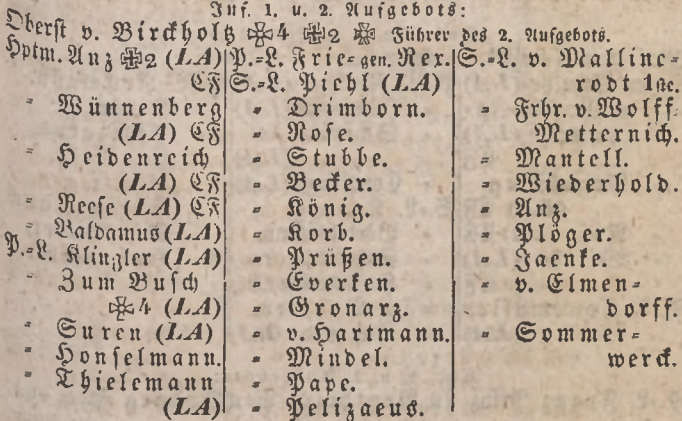 Inf. 1. u. 2. Aufgebots:
Oberst v. Birckholtz 4 2 Führer des 2. Aufgebots.
Hptm. Anz 2 (LA)
CF
" Wünnenberg
(LA) CF
" Heidenreich
(LA) CF
" Reese (LA) CF
" Baldamus (LA)
P.-L. Klingler (LA)
" Zum Busch
4 (LA)
" Suren (LA)
" Honselmann.
" Thielemann
(LA)
P.-L. Frie= gen. Rex.
S.-L. Pichl (LA)
" Drimborn.
" Rose.
" Stubbe.
" Becker.
" König.
" Korb.
" Prüßen.
" Everken.
" Gronarz.
" v. Hartmann.
" Mindel.
" Pape.
" Pelizaeus.
S.-L. v. Mallinc=
rodt 1ste.
" Frhr. v. Wolff=
Metternich.
" Mantell.
" Wiederhold.
" Anz.
" Plöger.
" Jaenke.
" v. Elmen=
dorff.
" Sommer=
werck.